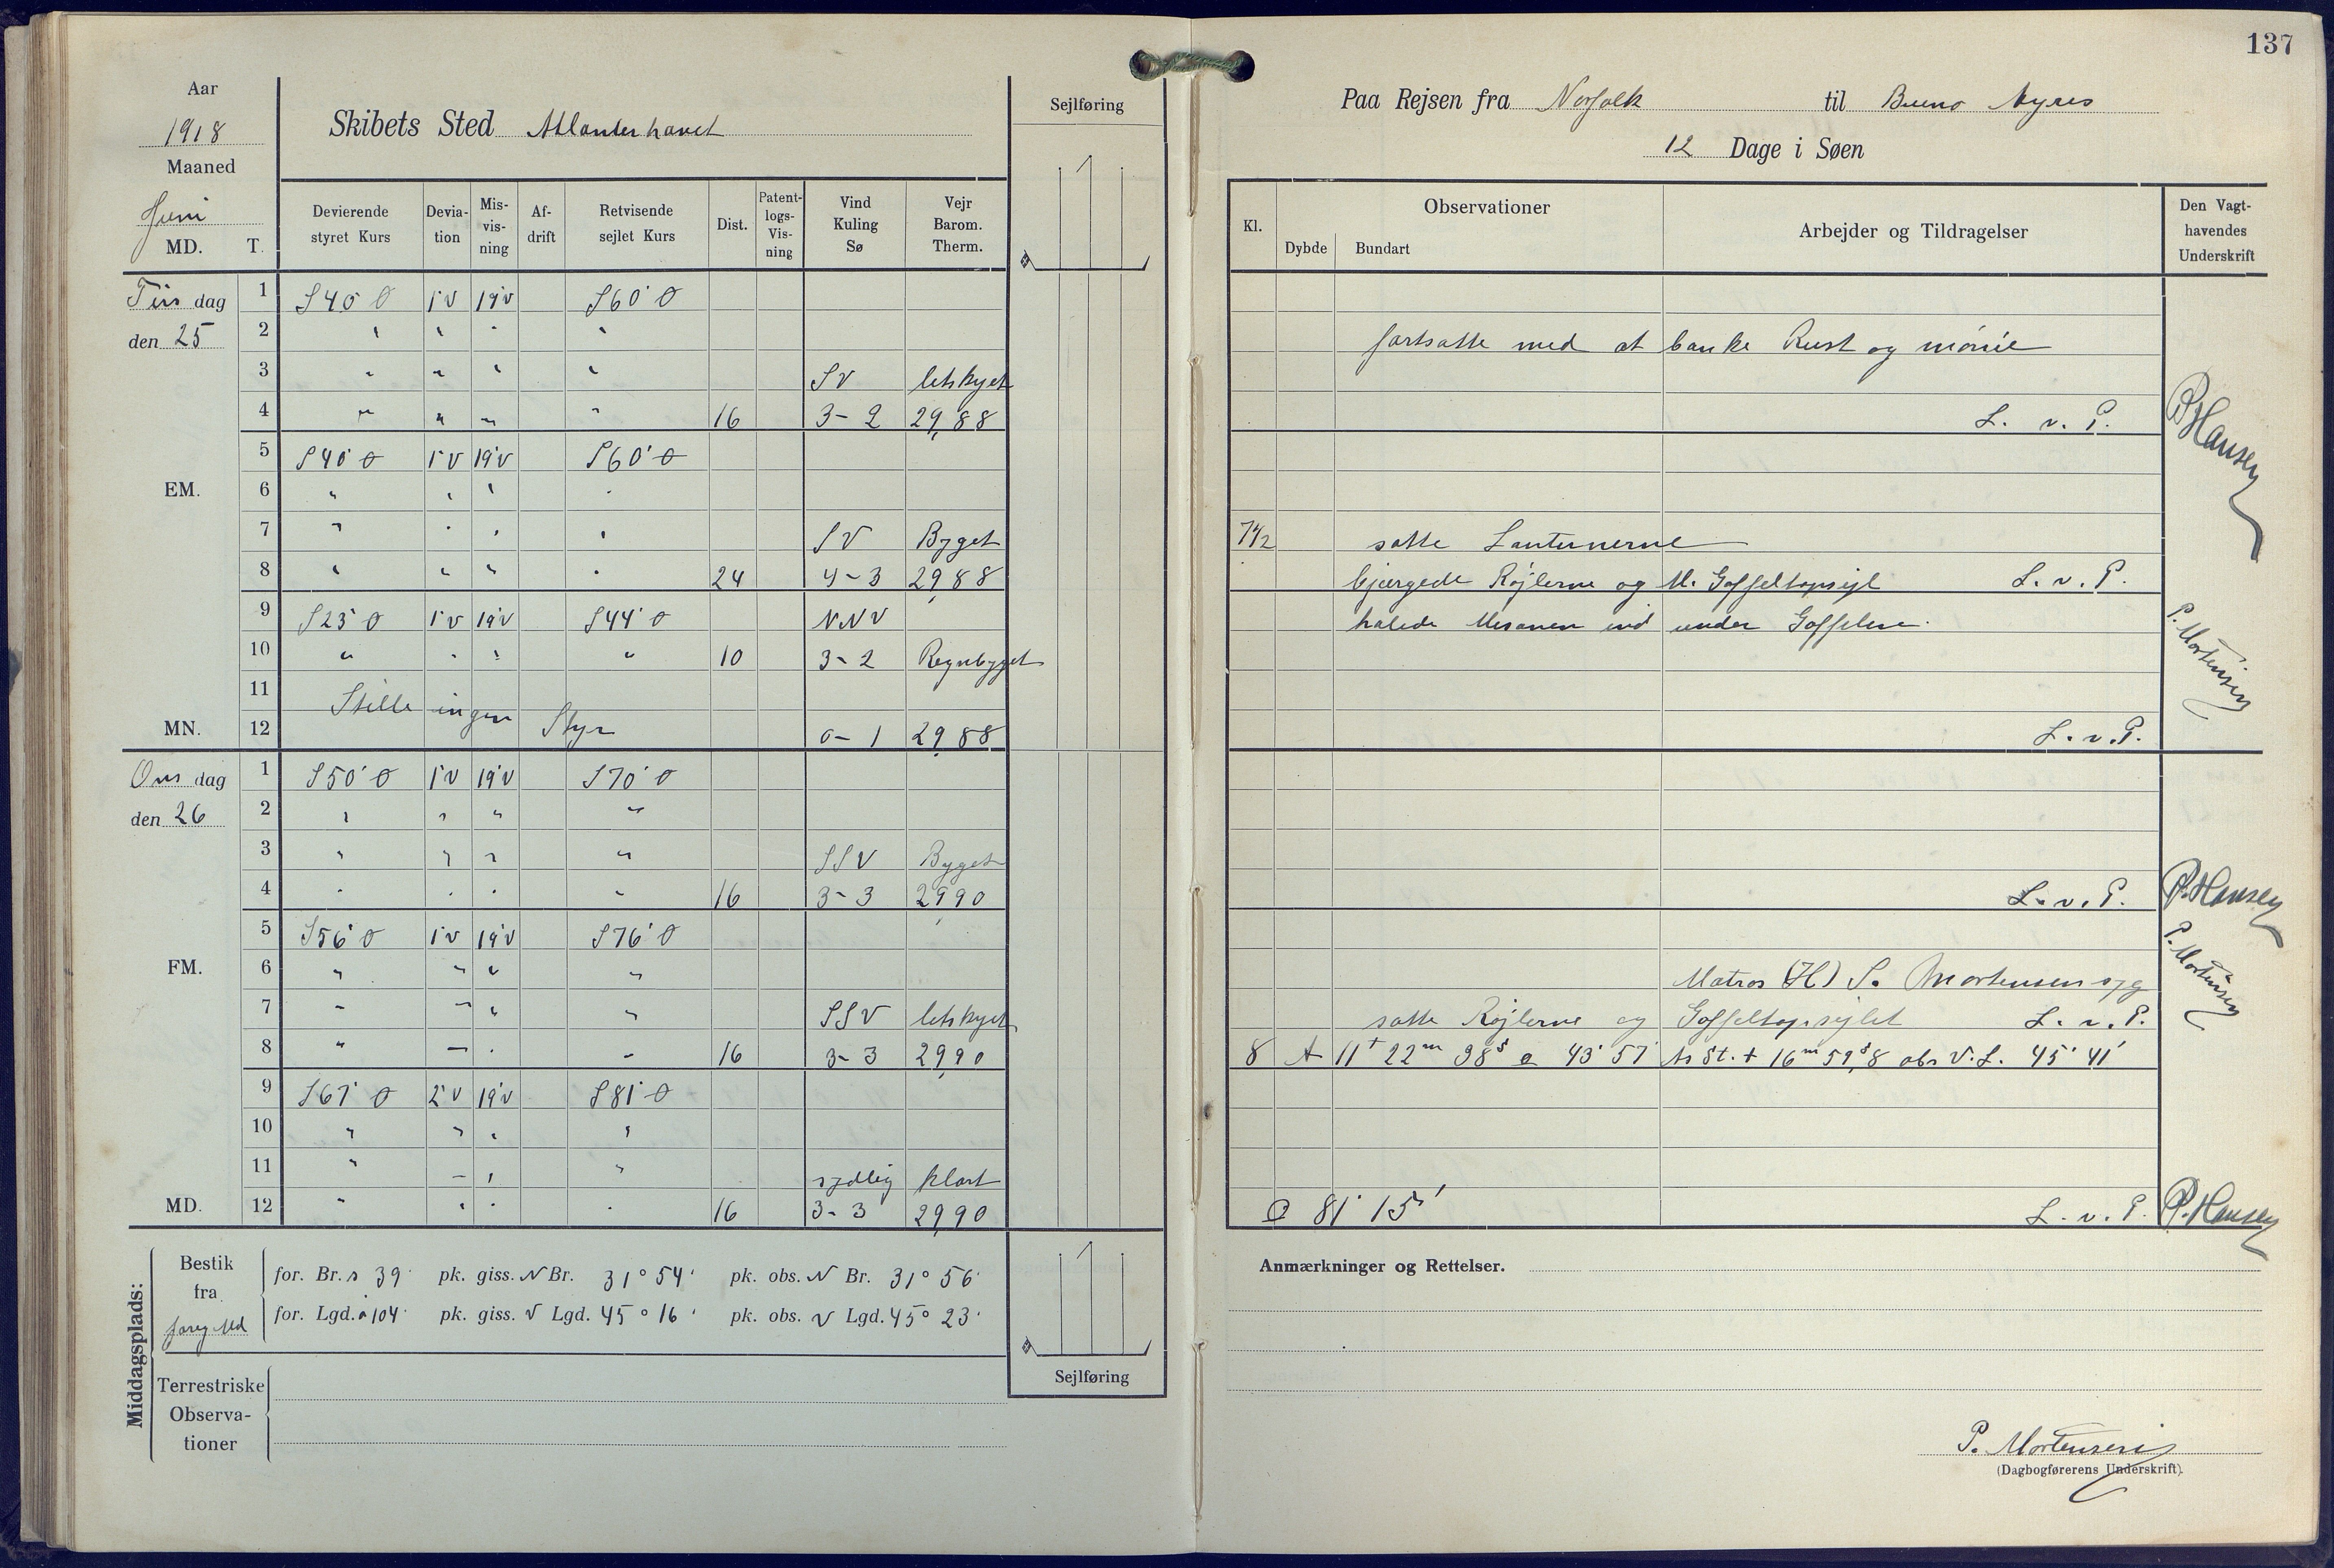 137
Aar
1918
Maaned
Juni
MD. T.
Skibets Sted Atlanterhavet
Sejlføring
Devierende styret Kurs
Deviation
Misvisning
Afdrift
Retvisende sejlet Kurs
Dist.
Patentlogs-Visning
Vind Kuling Sø
Vejr Barom. Therm.
Tirsdag
den 25
1 S40°O 1°V 19°V S60°O
2 " " " "
3 " " " " SV letskyet
4 " " " " 16 3-2 29,88
5 S40°O 1°V 19°V S60°O
EM.
6 " " " "
7 " " " " SV Byget
8 " " " " 24 4-3 29,88
9 S23°O 1°V 19°V S44°O NNV
10 " " " " 10 3-2 Regnbyget
11 Stille ingen Styr
MN. 12 0-1 29,88
Onsdag
den 26
1 S50°O 1°V 19°V S70°O
2 " " " "
3 " " " " SSV Byget
4 " " " " 16 3-3 29,90
5 S56°O 1°V 19°V S76°O
FM.
6 " " " "
7 " " " " SSV letskyet
8 " " " " 16 3-3 29,90
9 S61°O 2°V 19°V S81°O
10 " " " "
11 " " " " sydlig klart
MD. 12 " " " " 16 3-3 29,90
Middagsplads:
Bestik fra foreg Md
for. Br. s 39' pk. giss. N Br. 31° 54' pk. obs. N Br. 31° 56'
for. Lgd. ø 104' pk. giss. V Lgd. 45° 16' pk. obs. V Lgd. 45° 23'
Terrestriske Observationer
Sejlføring
Paa Rejsen fra Norfolk til Bueno Ayres
12 Dage i Søen
Kl.
Observationer
Dybde Bundart
Arbejder og Tildragelser
Den Vagthavendes Underskrift
fortsatte med at banke Rust og mønie
L. v. P.
P. Hansen
7 1/2 satte Lanternerne
bjærgede Røjlerne og M. Gaffeltopsejl L. v. P.
halede Mesanen ind under Gaffelen.
P. Mortensen
L. v. P.
L. v. P. P. Hansen
Matros (H) S. Mortensen syg
P. Mortensen
satte Røjlerne og Gaffeltopsejlet L. v. P.
8 A 11 t 22 m 38 s 43° 57' St. + 16 m 59,8 s obs V. L. 45° 41'
81° 15' L. v. P. P. Hansen
Anmærkninger og Rettelser.
P. Mortensen
(Dagbogførerens Underskrift)